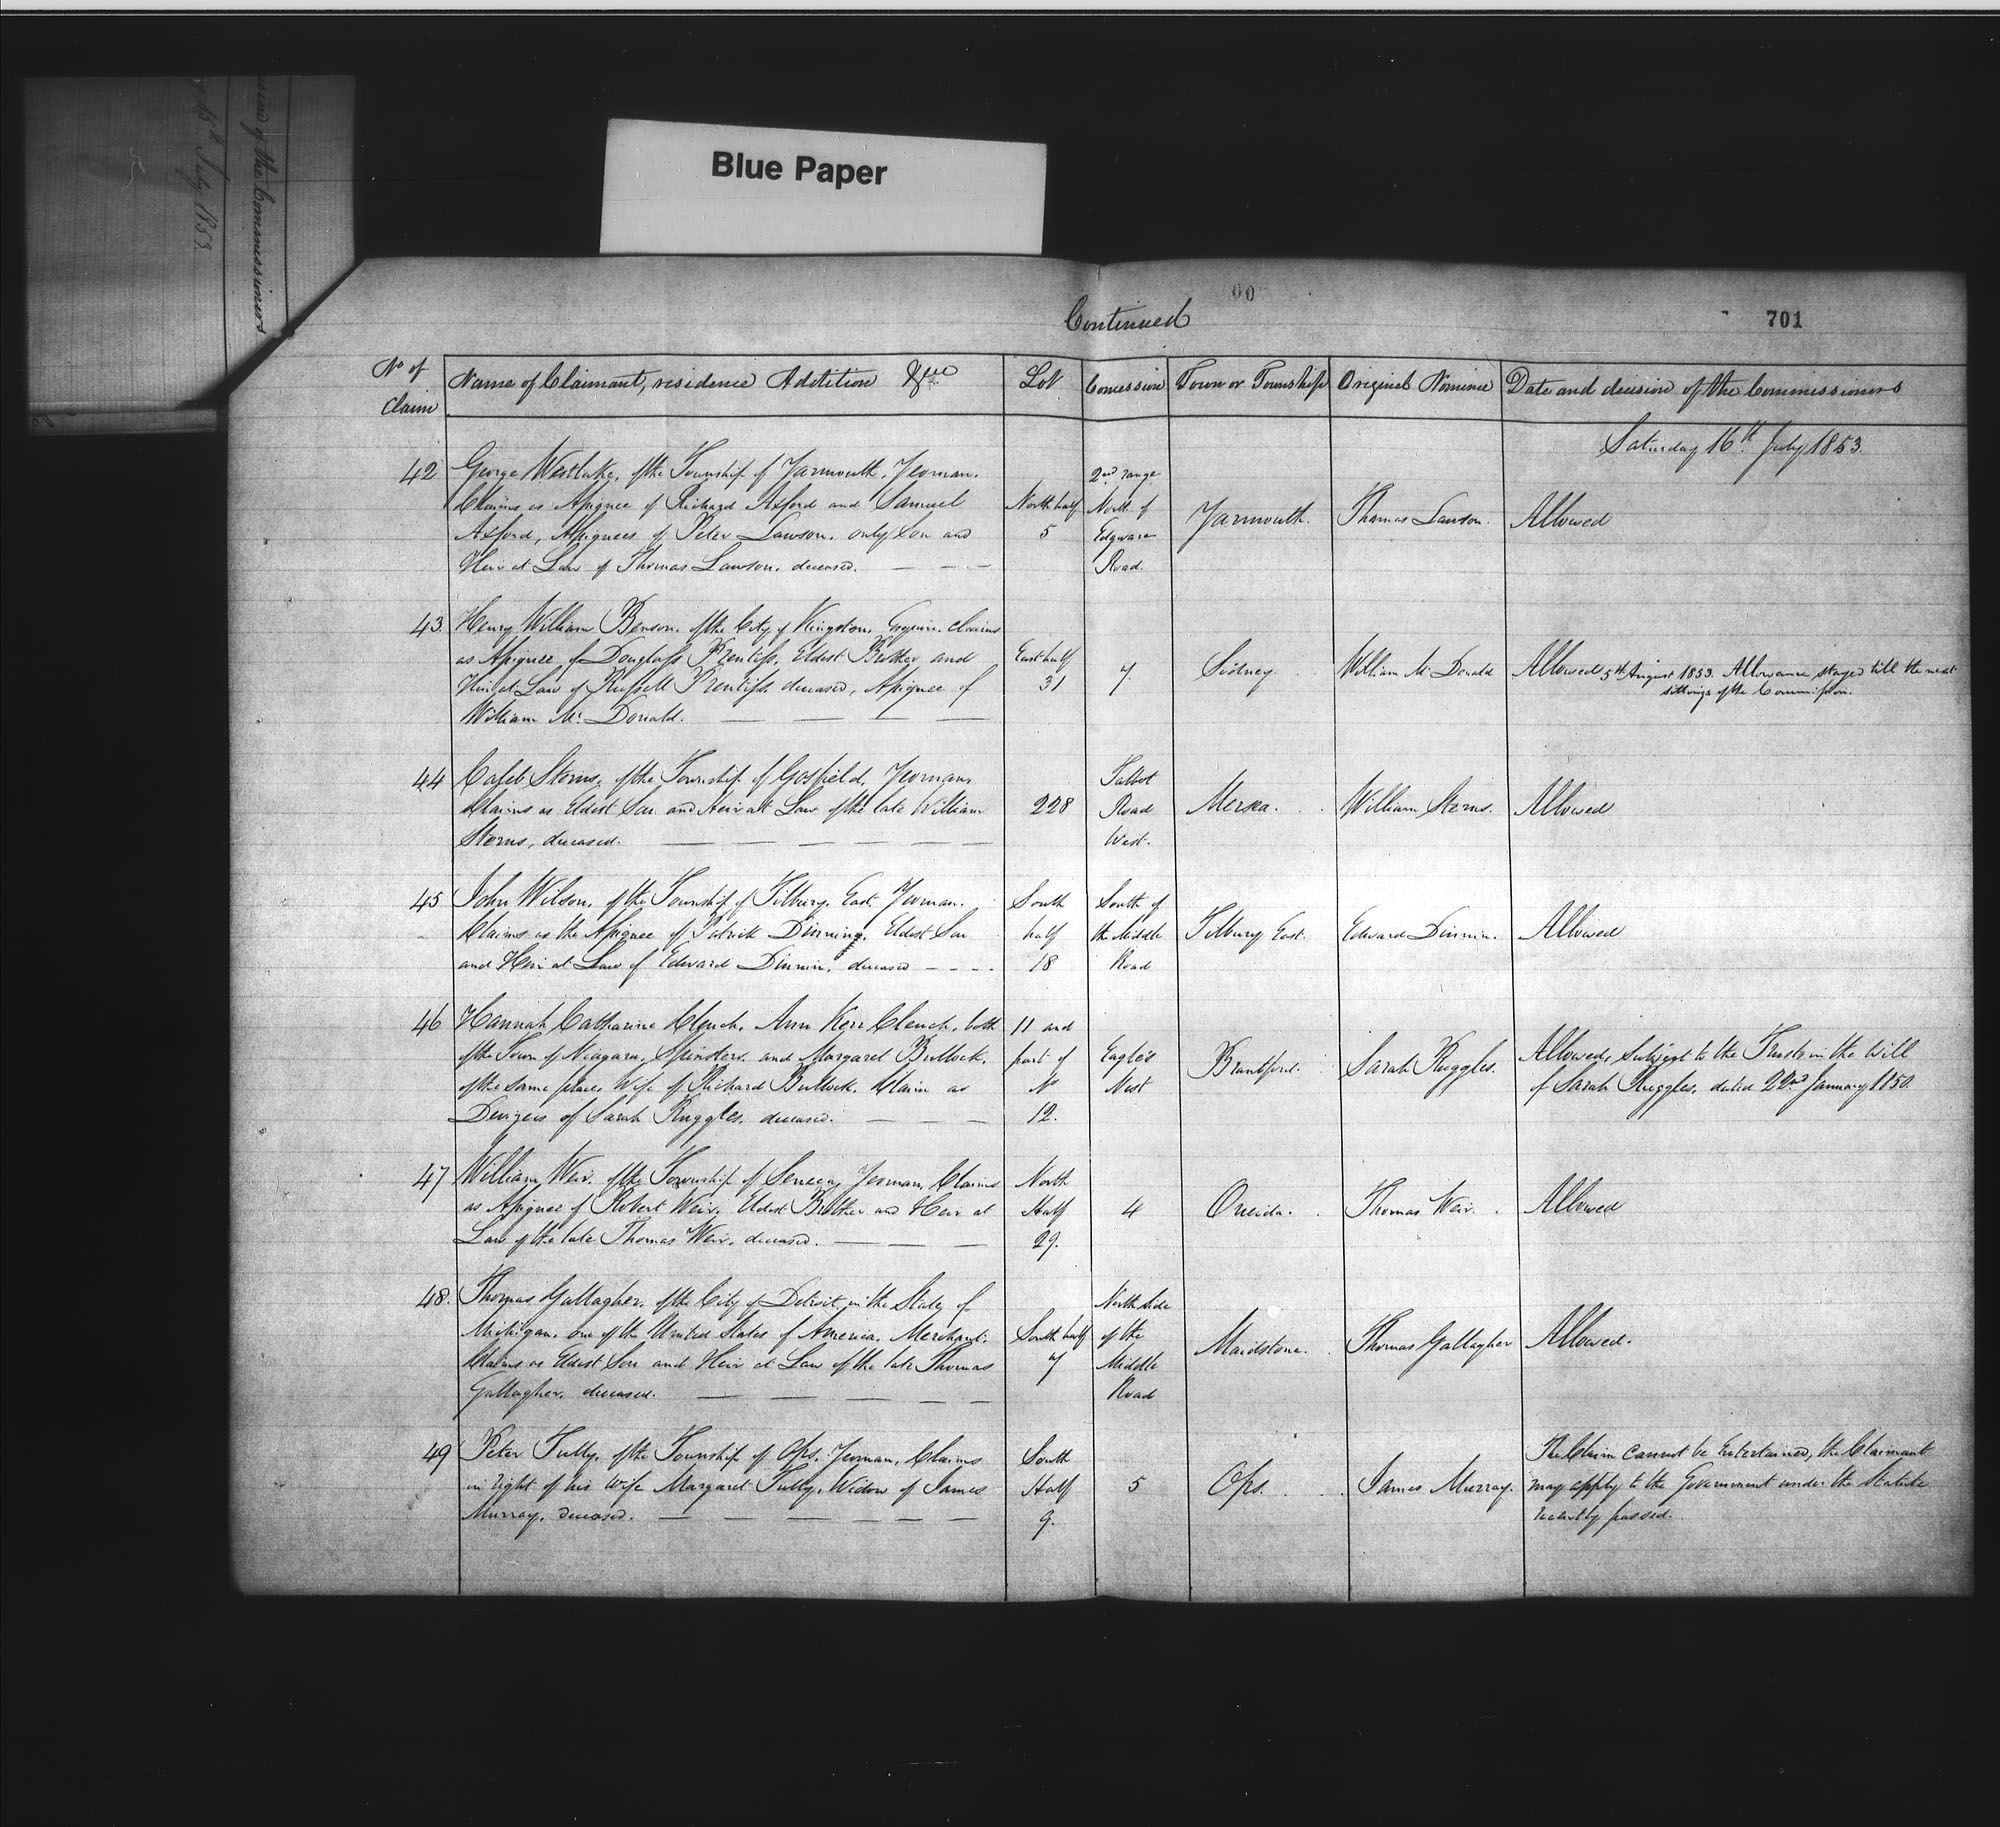 sion of the Commissioners
15th July 1853.
Blue Paper
00
Continued
701
No of Claim
Name of Claimant, residence Addition &cc
Lot
Concession
Town or Township
Original Nominee
Date and decision of the Commissioners
Saturday 16th July 1853.
42
George Westlake, of the Township of Yarmouth, Yeoman.
Claims as Assignee of Richard Axford and Samuel
Axford, Assignees of Peter Lawson, only Son and
Heir at Law of Thomas Lawson, deceased.
North half
5
2nd range
North of
Edgware
Road.
Yarmouth.
Thomas Lawson.
Allowed
43.
Henry William Benson, of the City of Kingston, Esquire, claims
as Assignee of Douglass Prentiss, Eldest Brother and
Heir at Law of Russell Prentiss deceased, Assignee of
William Mc Donald.
East half
31
7
Sidney.
William Mc Donald
Allowed 5th August 1853. Allowance stayed till the next
sittings of the Commission.
44
Caleb Sterns, of the Township of Gosfield, Yeoman,
Claims as Eldest Son and Heir at Law of the late William
Sterns, deceased.
228
Talbot
Road
West.
Mersea.
William Sterns.
Allowed
45
John Wilson, of the Township of Tilbury East, Yeoman.
Claims as the Assignee of Patrick Dinning, Eldest Son
and Heir at Law of Edward Dinnin, deceased
South
half
18
South of
the Middle
Road
Tilbury East.
Edward Dinnin.
Allowed
46
Hannah Catharine Clench, Ann Kerr Clench, both
of the Town of Niagara, Spinsters, and Margaret Bullock,
of the same place, Wife of Richard Bullock, Claim as
Devizees of Sarah Ruggles, deceased.
11 and
part of
No
12.
Eagle's
Nest
Brantford.
Sarah Ruggles.
Allowed, Subject to the Trusts in the Will
of Sarah Ruggles, dated 22nd January 1850.
47
William Weir, of the Township of Seneca, Yeoman, Claims
as Assignee of Robert Weir, Eldest Brother and Heir at
Law of the late Thomas Weir, deceased.
North
Half
29.
4
Oneida.
Thomas Weir.
Allowed
48.
Thomas Gallagher, of the City of Detroit, in the State of
Michigan, one of the United States of America, Merchant.
Claims as Eldest Son and Heir at Law of the late Thomas
Gallagher, deceased.
South half
7
North side
of the
Middle
Road
Maidstone.
Thomas Gallagher
Allowed.
49
Peter Tully, of the Township of Ops, Yeoman, Claims
in right of his Wife Margaret Tully, Widow of James
Murray, deceased.
South
Half
9.
5
Ops.
James Murray.
The Claim cannot be Entertained, the Claimant
may apply to the Government under the Statute
recently passed.